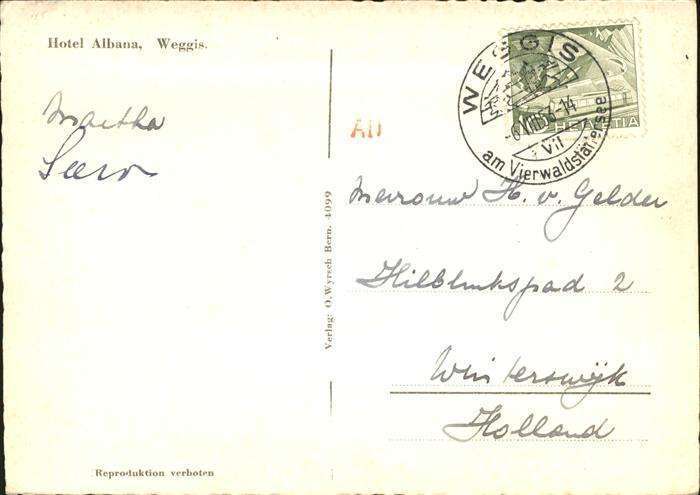 Hotel Albana, Weggis.
Martha
WEGGIS
-6.VIII.53-14
VII
am Vierwaldstättersee
HELVETIA
Verlag: O. Wyrsch Bern. 4099
Mevrouw H. v. Gelder
Hilblinkspad 2
Winterswijk
Holland
Reproduktion verboten